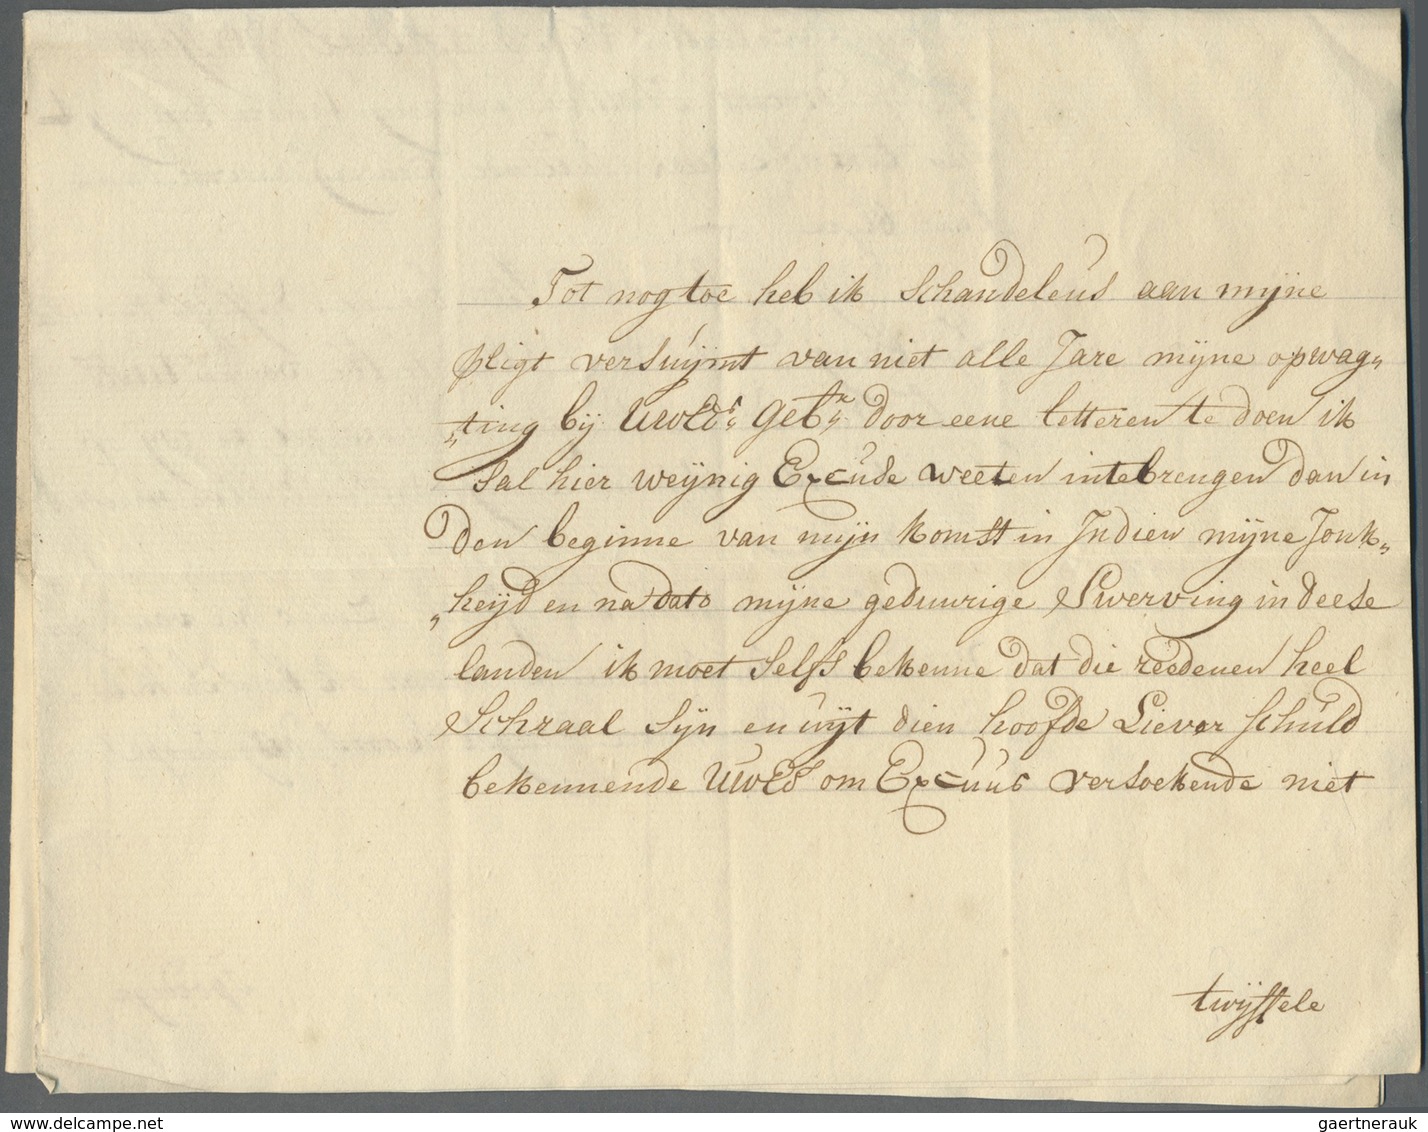 Tot nog toe heb ik schandeleus aan mijne
pligt versuijmt van niet alle Jare mijne opwag„
„ting bij UwEds: Geb:n door eene letteren te doen ik
sal hier weijnig Excuse weeten intebrengen dan in
den beginne van mijn komst in Indien mijne Jonk„
„heijd en na dato mijne geduurige Swerving in deese
landen ik moet selfs bekenne dat die reedenen heel
Schraal sijn en uijt dien hoofde Liever schuld
bekennende UwEd om Excuus versoekende niet
twijffele
www.delcampe.net
gaertnerauk